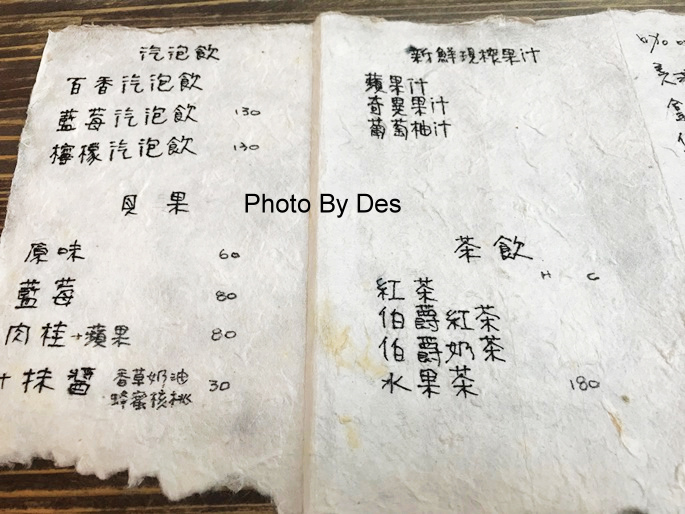 汽泡飲
百香汽泡飲
藍莓汽泡飲 130
檸檬汽泡飲 130
貝果
原味 60
藍莓 80
肉桂+蘋果 80
+抹醬 香草奶油 30
蜂蜜核桃
新鮮現榨果汁
蘋果汁
奇異果汁
葡萄柚汁
茶飲
H C
紅茶
伯爵紅茶
伯爵奶茶
水果茶 180
Photo By Des